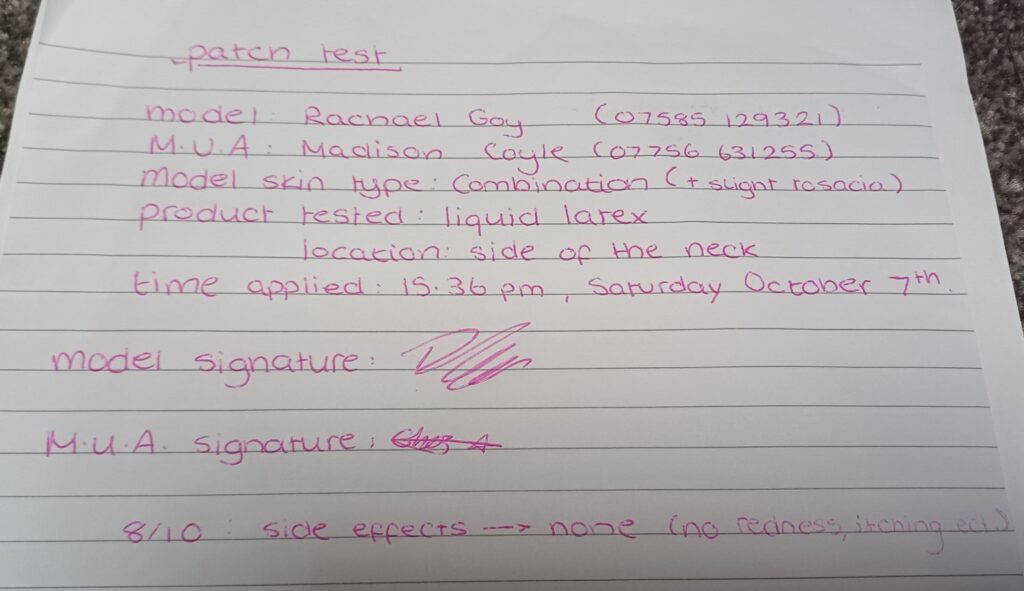 patch test
model: Rachael Gay (07585 129321)
M.U.A: Madison Coyle (07756 631255)
model skin type: Combination (+ slight rosacia)
product tested: liquid latex
location: side of the neck
time applied: 15.36 pm, Saturday October 7th.
model signature:
M.U.A. signature:
8/10: side effects → none (no redness, itching ect)